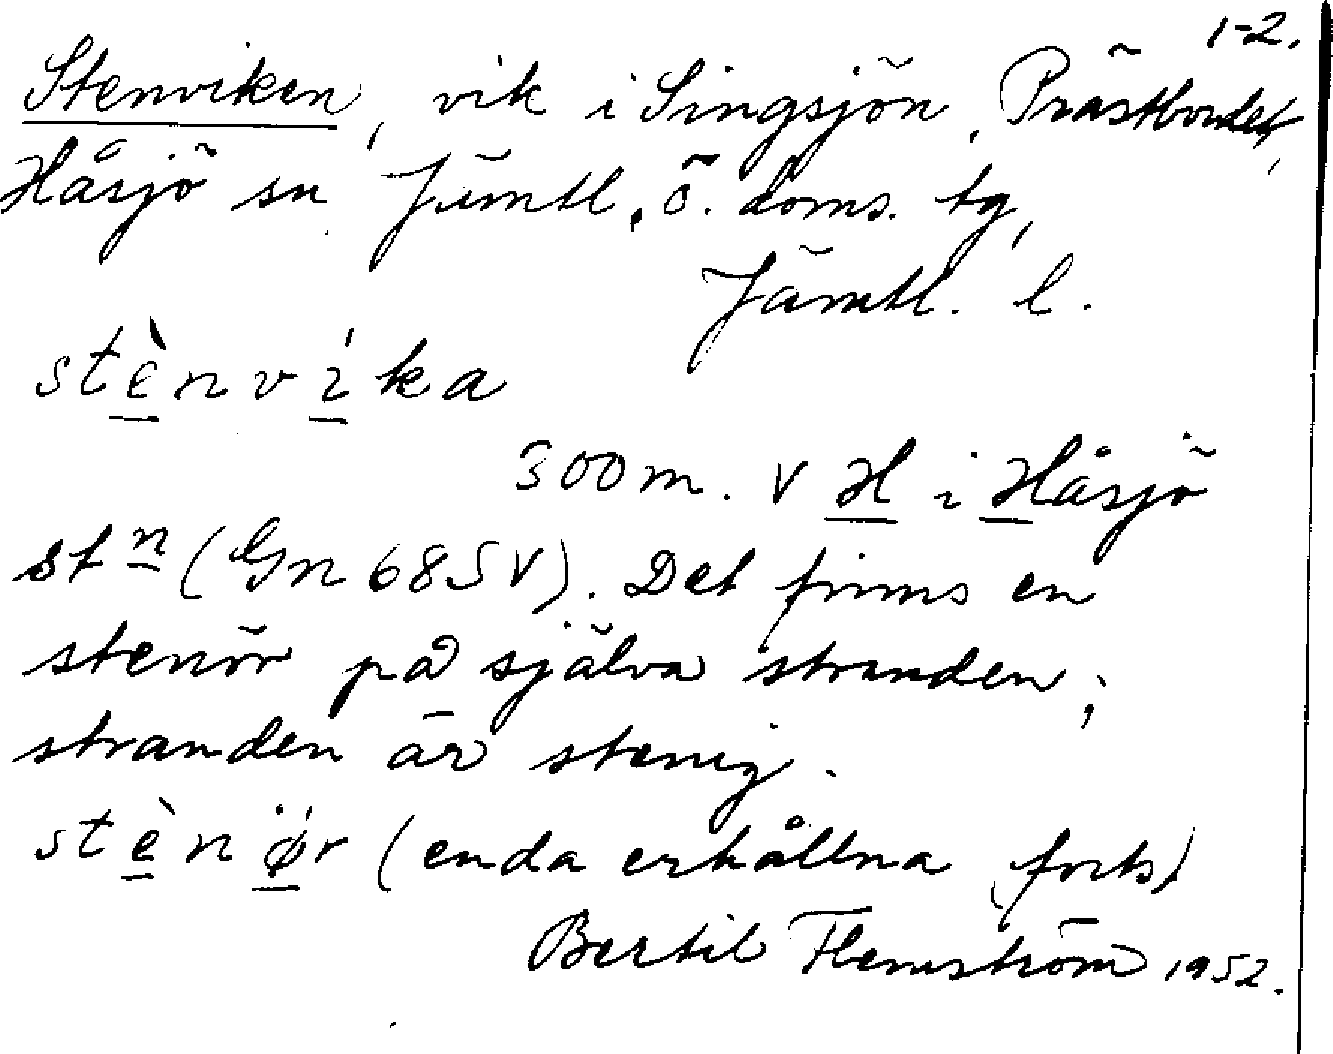 1-2.
Stenviken, vik i Singsjön, Prästbordet,
Håsjö sn Jämtl. ö. doms. tg,
Jämtl. l.
stènvíka
300 m. V H i Håsjö
stn (Gn 68 SV). Det finns en
stenör på själva stranden;
stranden är stenig.
stènǿr (enda erhållna (forts)
Bertil Flemström 1952.